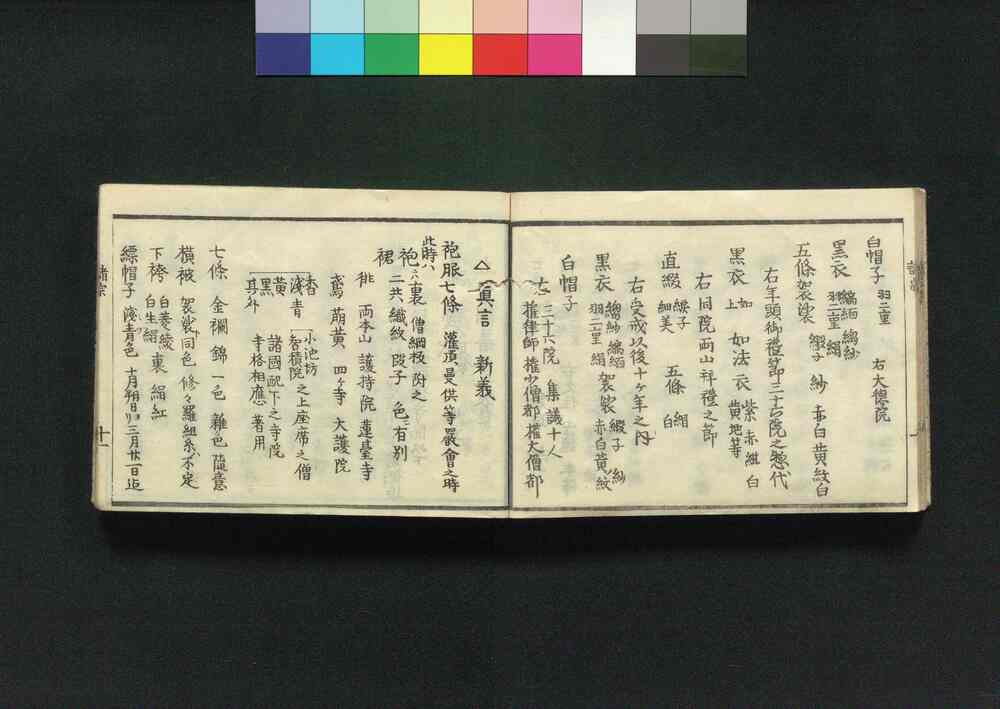 白帽子 羽二重 右大徳院
黒衣 縞緬 縐紗 羽二重 絹
五條袈裟 緞子 紗 赤白黄紋白
右年頭御禮節三十六院之惣代
黒衣 如上 如法衣 紫 赤 紺 白 黄地等
右同院両山祥禮之節
直綴 緞子 細美 五條 絹 白
右受戒以後十ヶ年之内
黒衣 縐紗 縞緬 羽二重 絹 袈裟 緞子 紗 赤白黄紋
白帽子
右 三十六院 集議十人
権律師 権少僧都 権大僧都
△真言 新義
袍服七條 灌頂曼供等嚴會之時
此時ハ
袍 六裏 僧綱板附之
裙 二共織紋 段子 色有別
緋 両本山 護持院 蓮臺寺
鳶 萠黄 四ヶ寺 大護院
香 浅青 小池坊 智積院 之上座席之僧
黄 黒 其外 諸國配下之寺院 寺格相應著用
七條 金襴 錦 一色 雜色 隨意
横被 袈裟ト同色 修々羅組糸不定
下袴 白菱綾 白生絹 裏絹紅
縹帽子 浅青色 十月朔日ヨリ三月廿一日迄
諸宗
十一